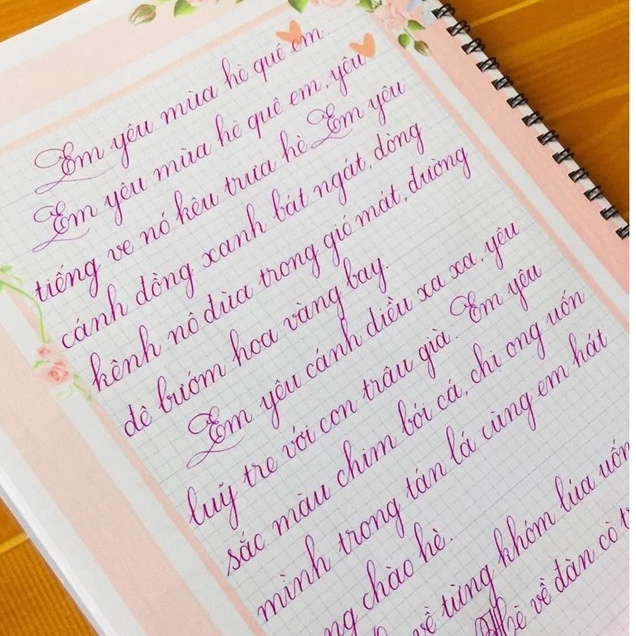 Em yêu mùa hè quê em
Em yêu mùa hè quê em, yêu
tiếng ve nó kêu trưa hè. Em yêu
cánh đồng xanh bát ngát, dòng
kênh nô đùa trong gió mát, đường
đê bướm hoa vàng bay.
Em yêu cánh diều xa xa, yêu
luỹ tre với con trâu già. Em yêu
sắc màu chim bói cá, chị ong uốn
mình trong tán lá cùng em hát
chào hè.
về từng khóm lúa uốn
Hè về đàn cò